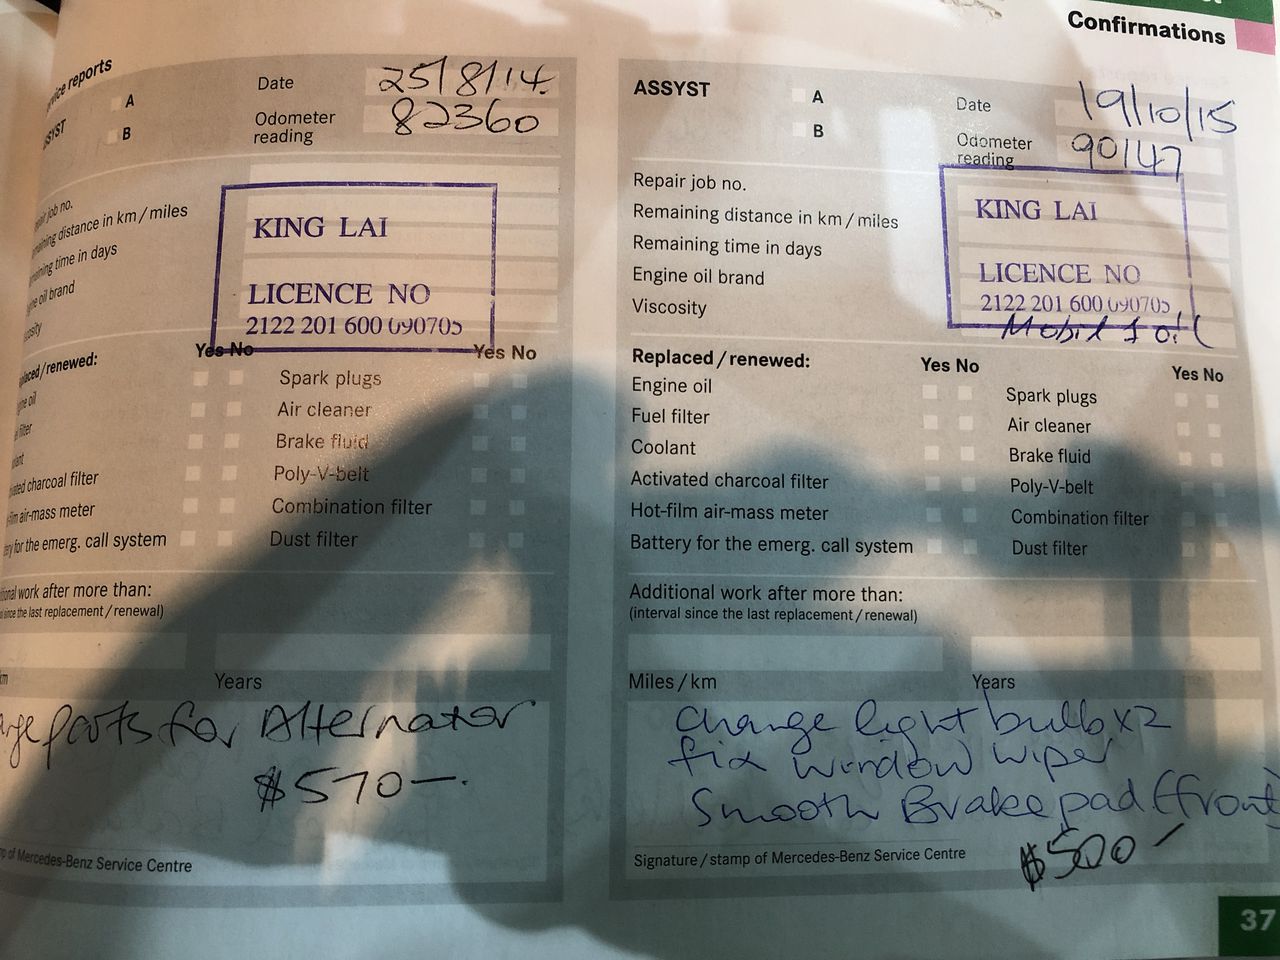 Confirmations
reports
A
B
Date 25/8/14
Odometer reading 82360
job no.
distance in km / miles
time in days
oil brand
KING LAI
LICENCE NO
2122 201 600 090705
/renewed:
Yes No
Yes No
Spark plugs
Air cleaner
Brake fluid
charcoal filter
Poly-V-belt
air-mass meter
Combination filter
for the emerg. call system
Dust filter
work after more than:
since the last replacement / renewal)
km
Years
parts for Alternator
$570—.
of Mercedes-Benz Service Centre
ASSYST
A
B
Date 19/10/15
Odometer reading 90147
Repair job no.
Remaining distance in km / miles
Remaining time in days
Engine oil brand
Viscosity
KING LAI
LICENCE NO
2122 201 600 090705
Mobil 1 oil
Replaced / renewed:
Yes No
Yes No
Engine oil
Spark plugs
Fuel filter
Air cleaner
Coolant
Brake fluid
Activated charcoal filter
Poly-V-belt
Hot-film air-mass meter
Combination filter
Battery for the emerg. call system
Dust filter
Additional work after more than:
(interval since the last replacement / renewal)
Miles / km
Years
change light bulb x2
fix window wiper
Smooth Brake pad (front)
$500—
Signature / stamp of Mercedes-Benz Service Centre
37